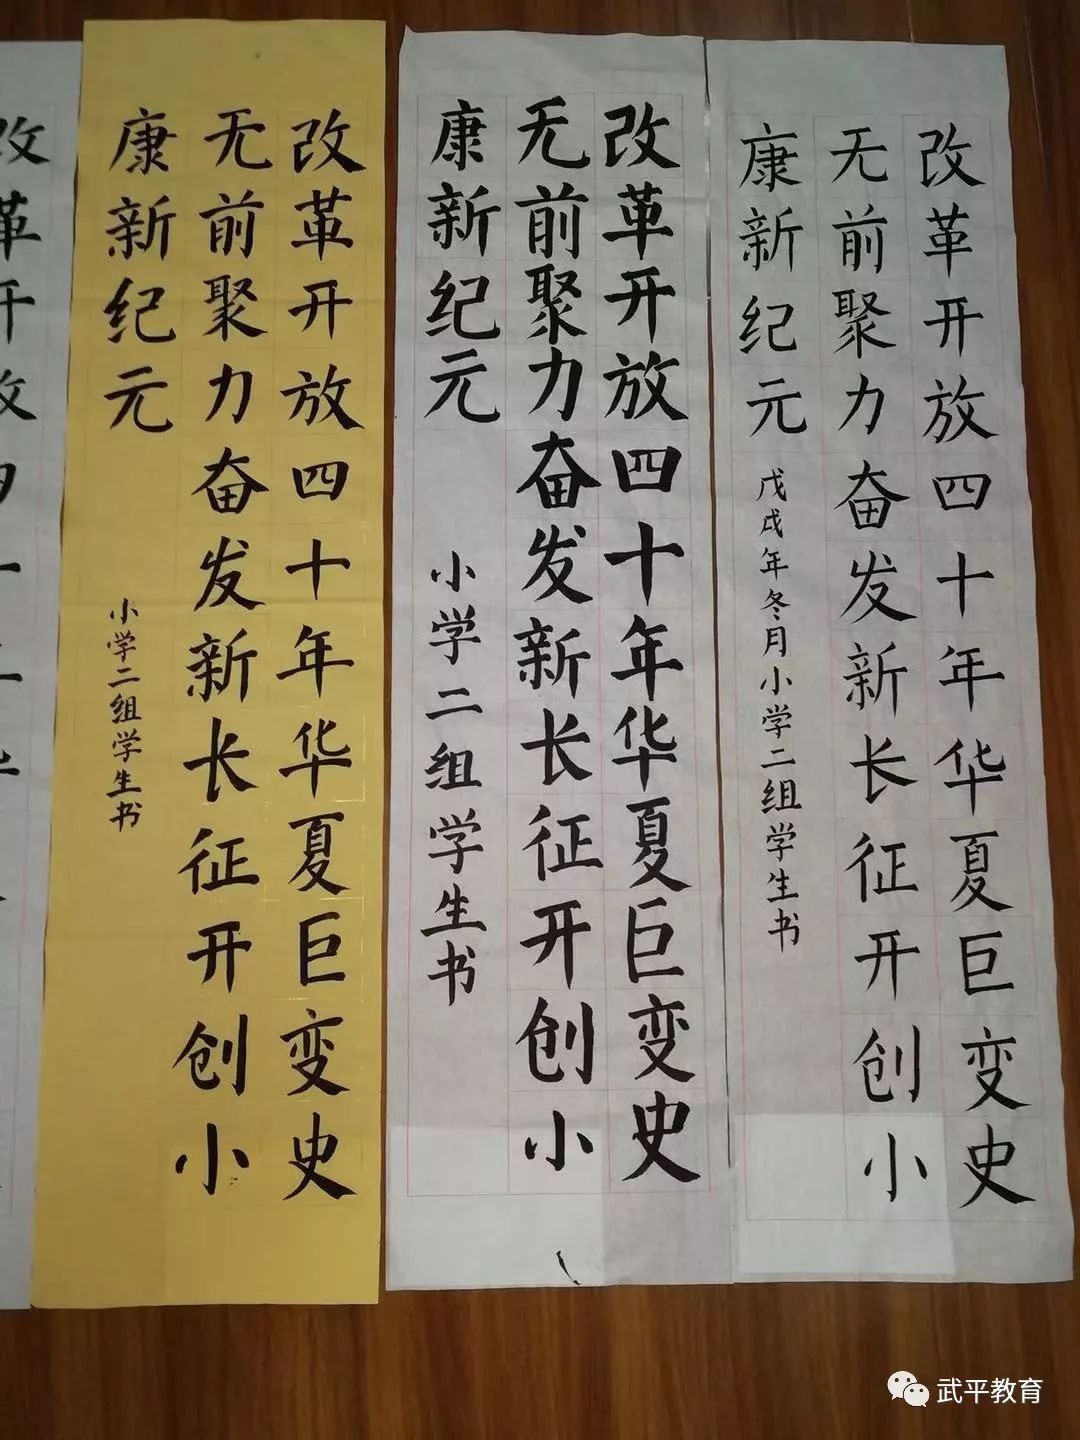 改革开放四十年华夏巨变史
无前聚力奋发新长征开创小
康新纪元
戊戌年冬月小学二组学生书
改革开放四十年华夏巨变史
无前聚力奋发新长征开创小
康新纪元
小学二组学生书
改革开放四十年华夏巨变史
无前聚力奋发新长征开创小
康新纪元
小学二组学生书
改革开放四十年华
武平教育